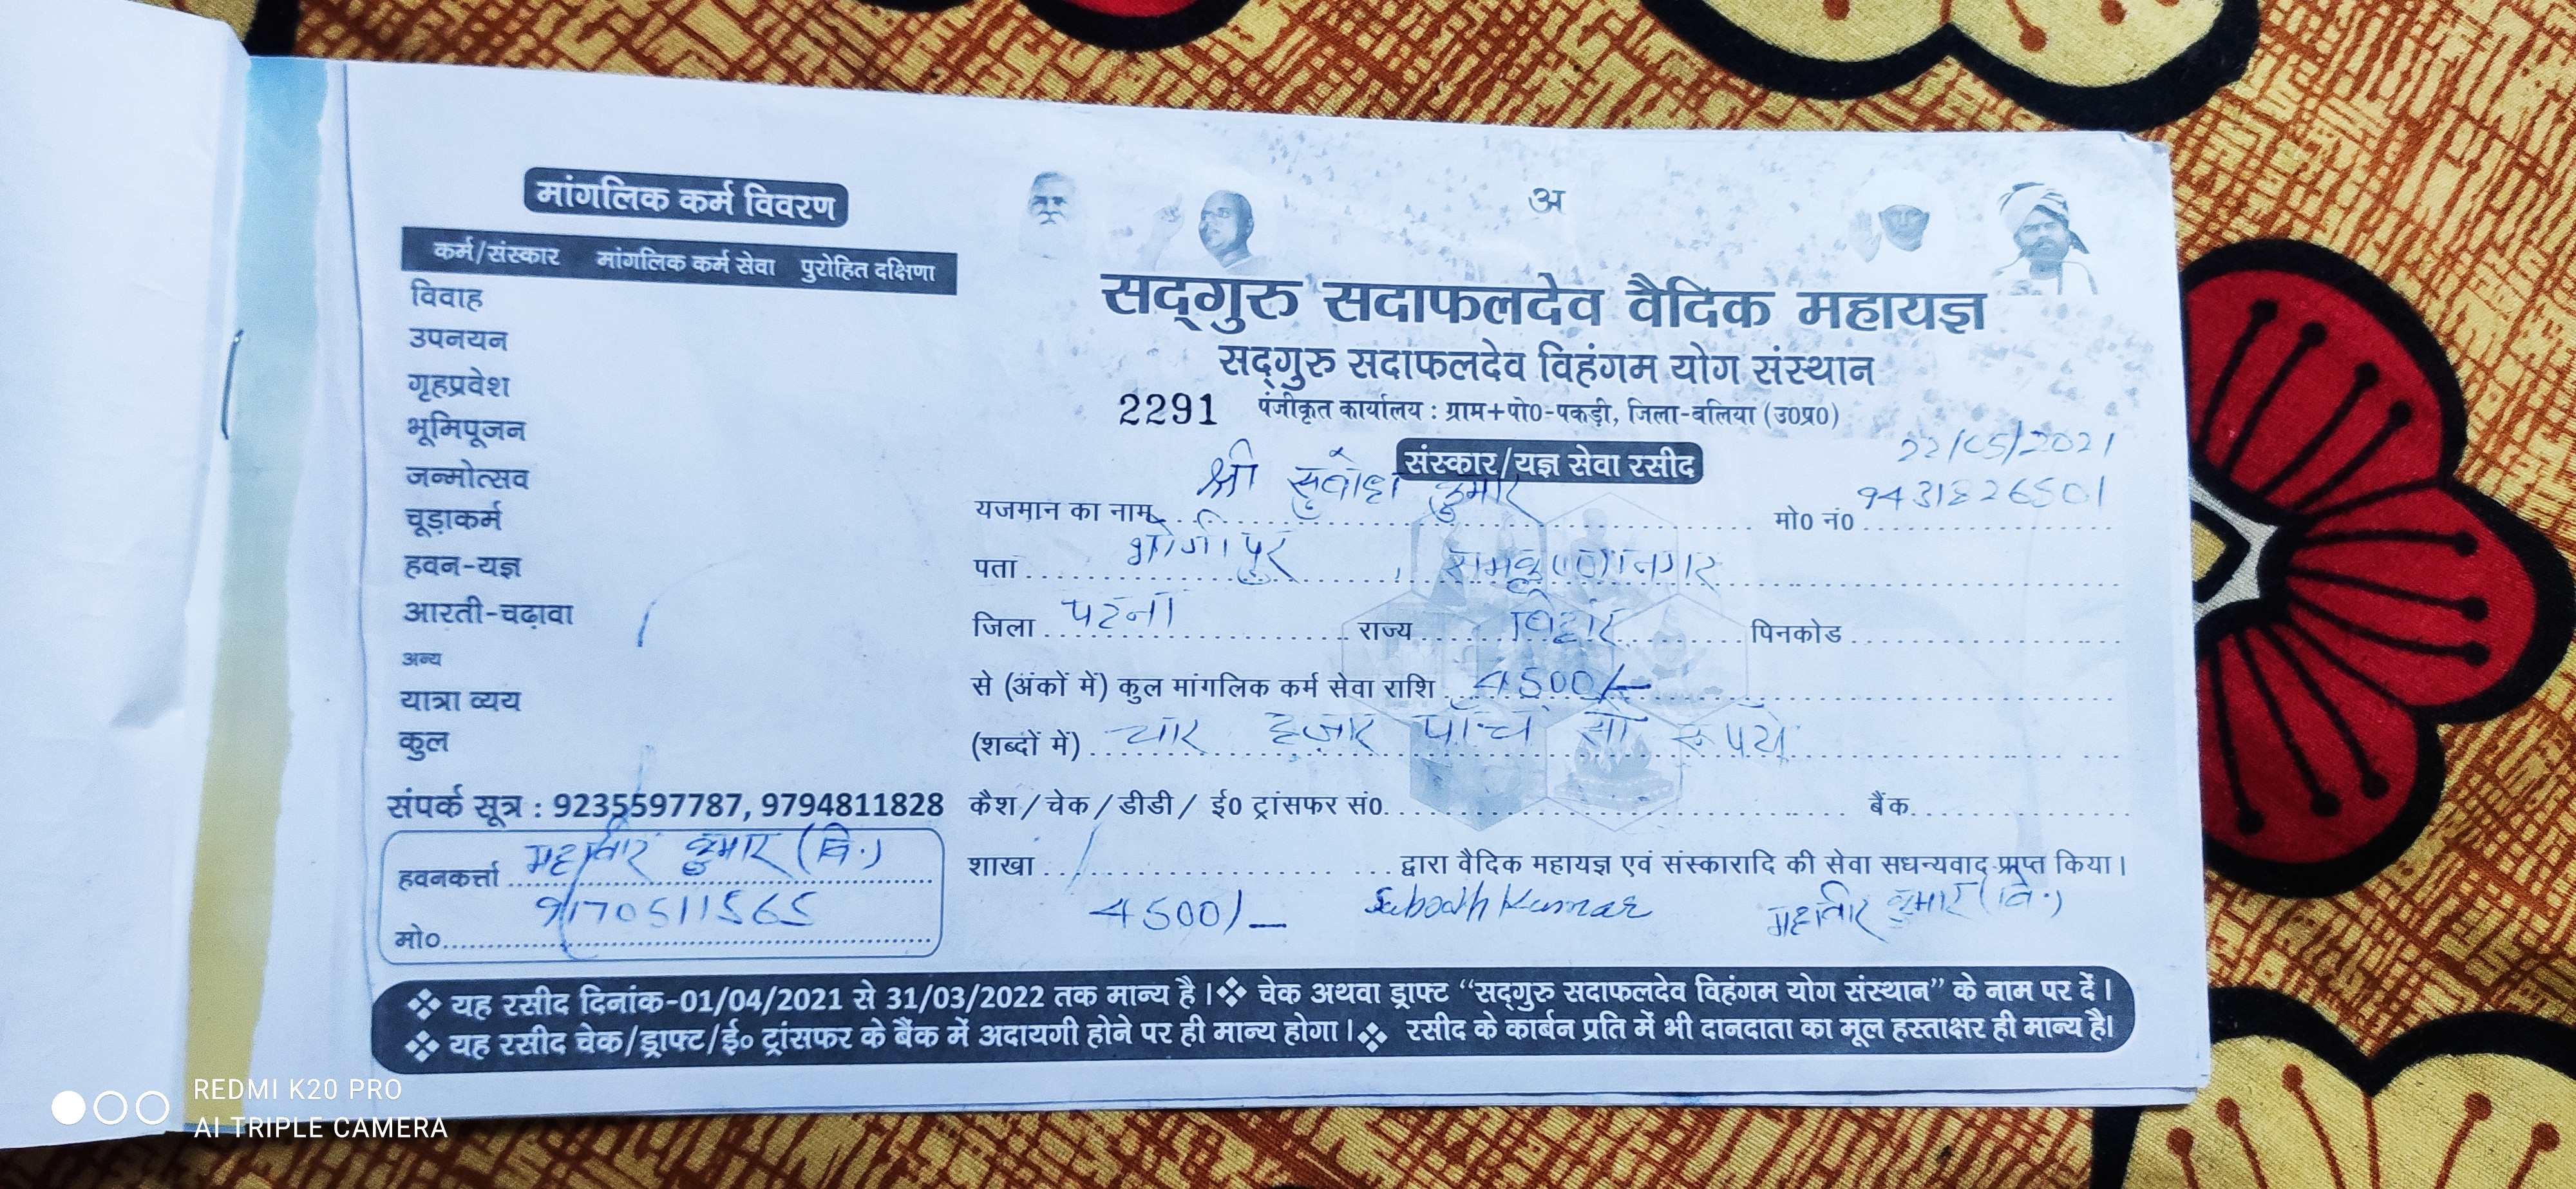 मांगलिक कर्म विवरण
कर्म/संस्कार मांगलिक कर्म सेवा पुरोहित दक्षिणा
विवाह
उपनयन
गृहप्रवेश
भूमिपूजन
जन्मोत्सव
चूड़ाकर्म
हवन-यज्ञ
आरती-चढ़ावा
अन्य
यात्रा व्यय
कुल
संपर्क सूत्र : 9235597787, 9794811828
हवनकर्त्ता महावीर कुमार (वि.)
मो० 9170511565
अ
सद्गुरु सदाफलदेव वैदिक महायज्ञ
सद्गुरु सदाफलदेव विहंगम योग संस्थान
2291 पंजीकृत कार्यालय : ग्राम+पो०-पकड़ी, जिला-बलिया (उ०प्र०)
संस्कार/यज्ञ सेवा रसीद 22/05/2021
यजमान का नाम श्री सुबोध कुमार मो० नं० 9431826501
पता भोगीपुर, रामकृष्णानगर
जिला पटना राज्य बिहार पिनकोड
से (अंकों में) कुल मांगलिक कर्म सेवा राशि 4500/-
(शब्दों में) चार हजार पाँच सौ रूपये
कैश/चेक/डीडी/ ई० ट्रांसफर सं०. बैंक
शाखा द्वारा वैदिक महायज्ञ एवं संस्कारादि की सेवा सधन्यवाद प्राप्त किया।
4500/- Subodh Kumar महावीर कुमार (वि.)
❖ यह रसीद दिनांक-01/04/2021 से 31/03/2022 तक मान्य है। ❖ चेक अथवा ड्राफ्ट “सद्गुरु सदाफलदेव विहंगम योग संस्थान” के नाम पर दें।
❖ यह रसीद चेक/ड्राफ्ट/ई० ट्रांसफर के बैंक में अदायगी होने पर ही मान्य होगा। ❖ रसीद के कार्बन प्रति में भी दानदाता का मूल हस्ताक्षर ही मान्य है।
REDMI K20 PRO
AI TRIPLE CAMERA